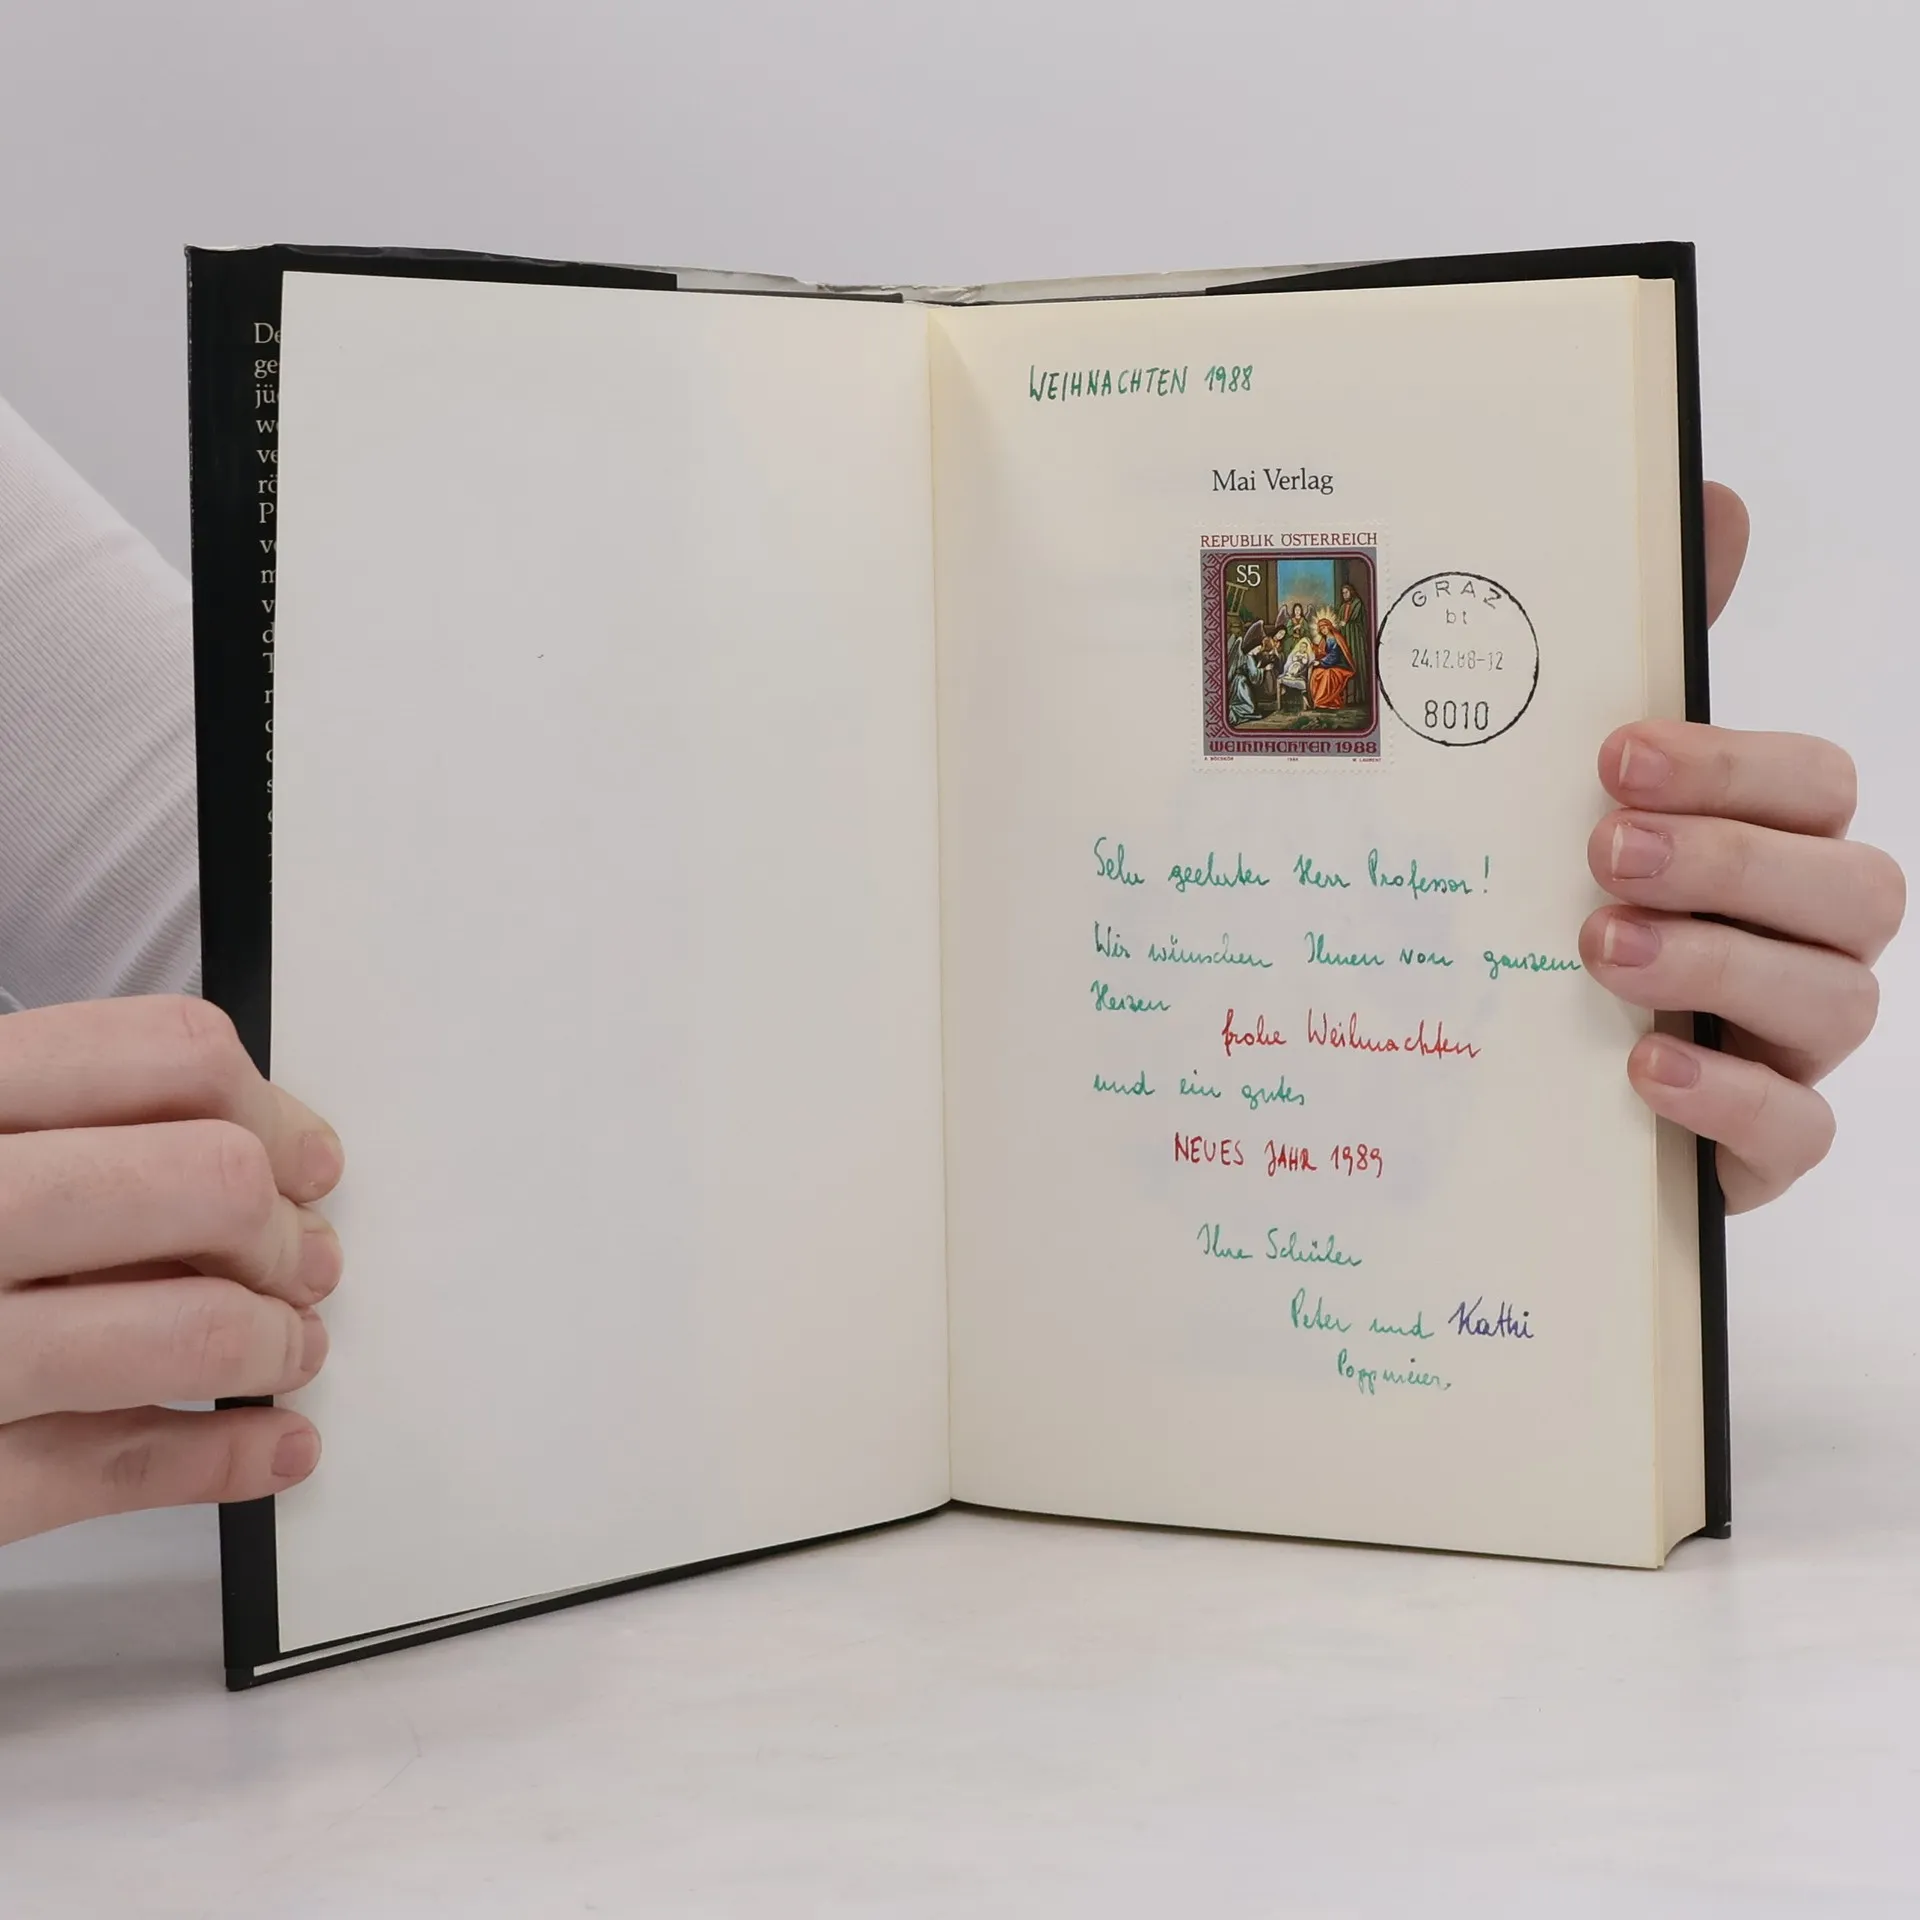 De
ge
jü
we
ve
rö
P
ve
m
v
d
T
WEIHNACHTEN 1988
Mai Verlag
REPUBLIK ÖSTERREICH
S5
WEIHNACHTEN 1988
1988
GRAZ
bt
24.12.88-12
8010
Sehr geehrter Herr Professor!
Wir wünschen Ihnen von ganzem
Herzen
frohe Weihnachten
und ein gutes
NEUES JAHR 1989
Ihre Schüler
Peter und Kathi
Poppmeier